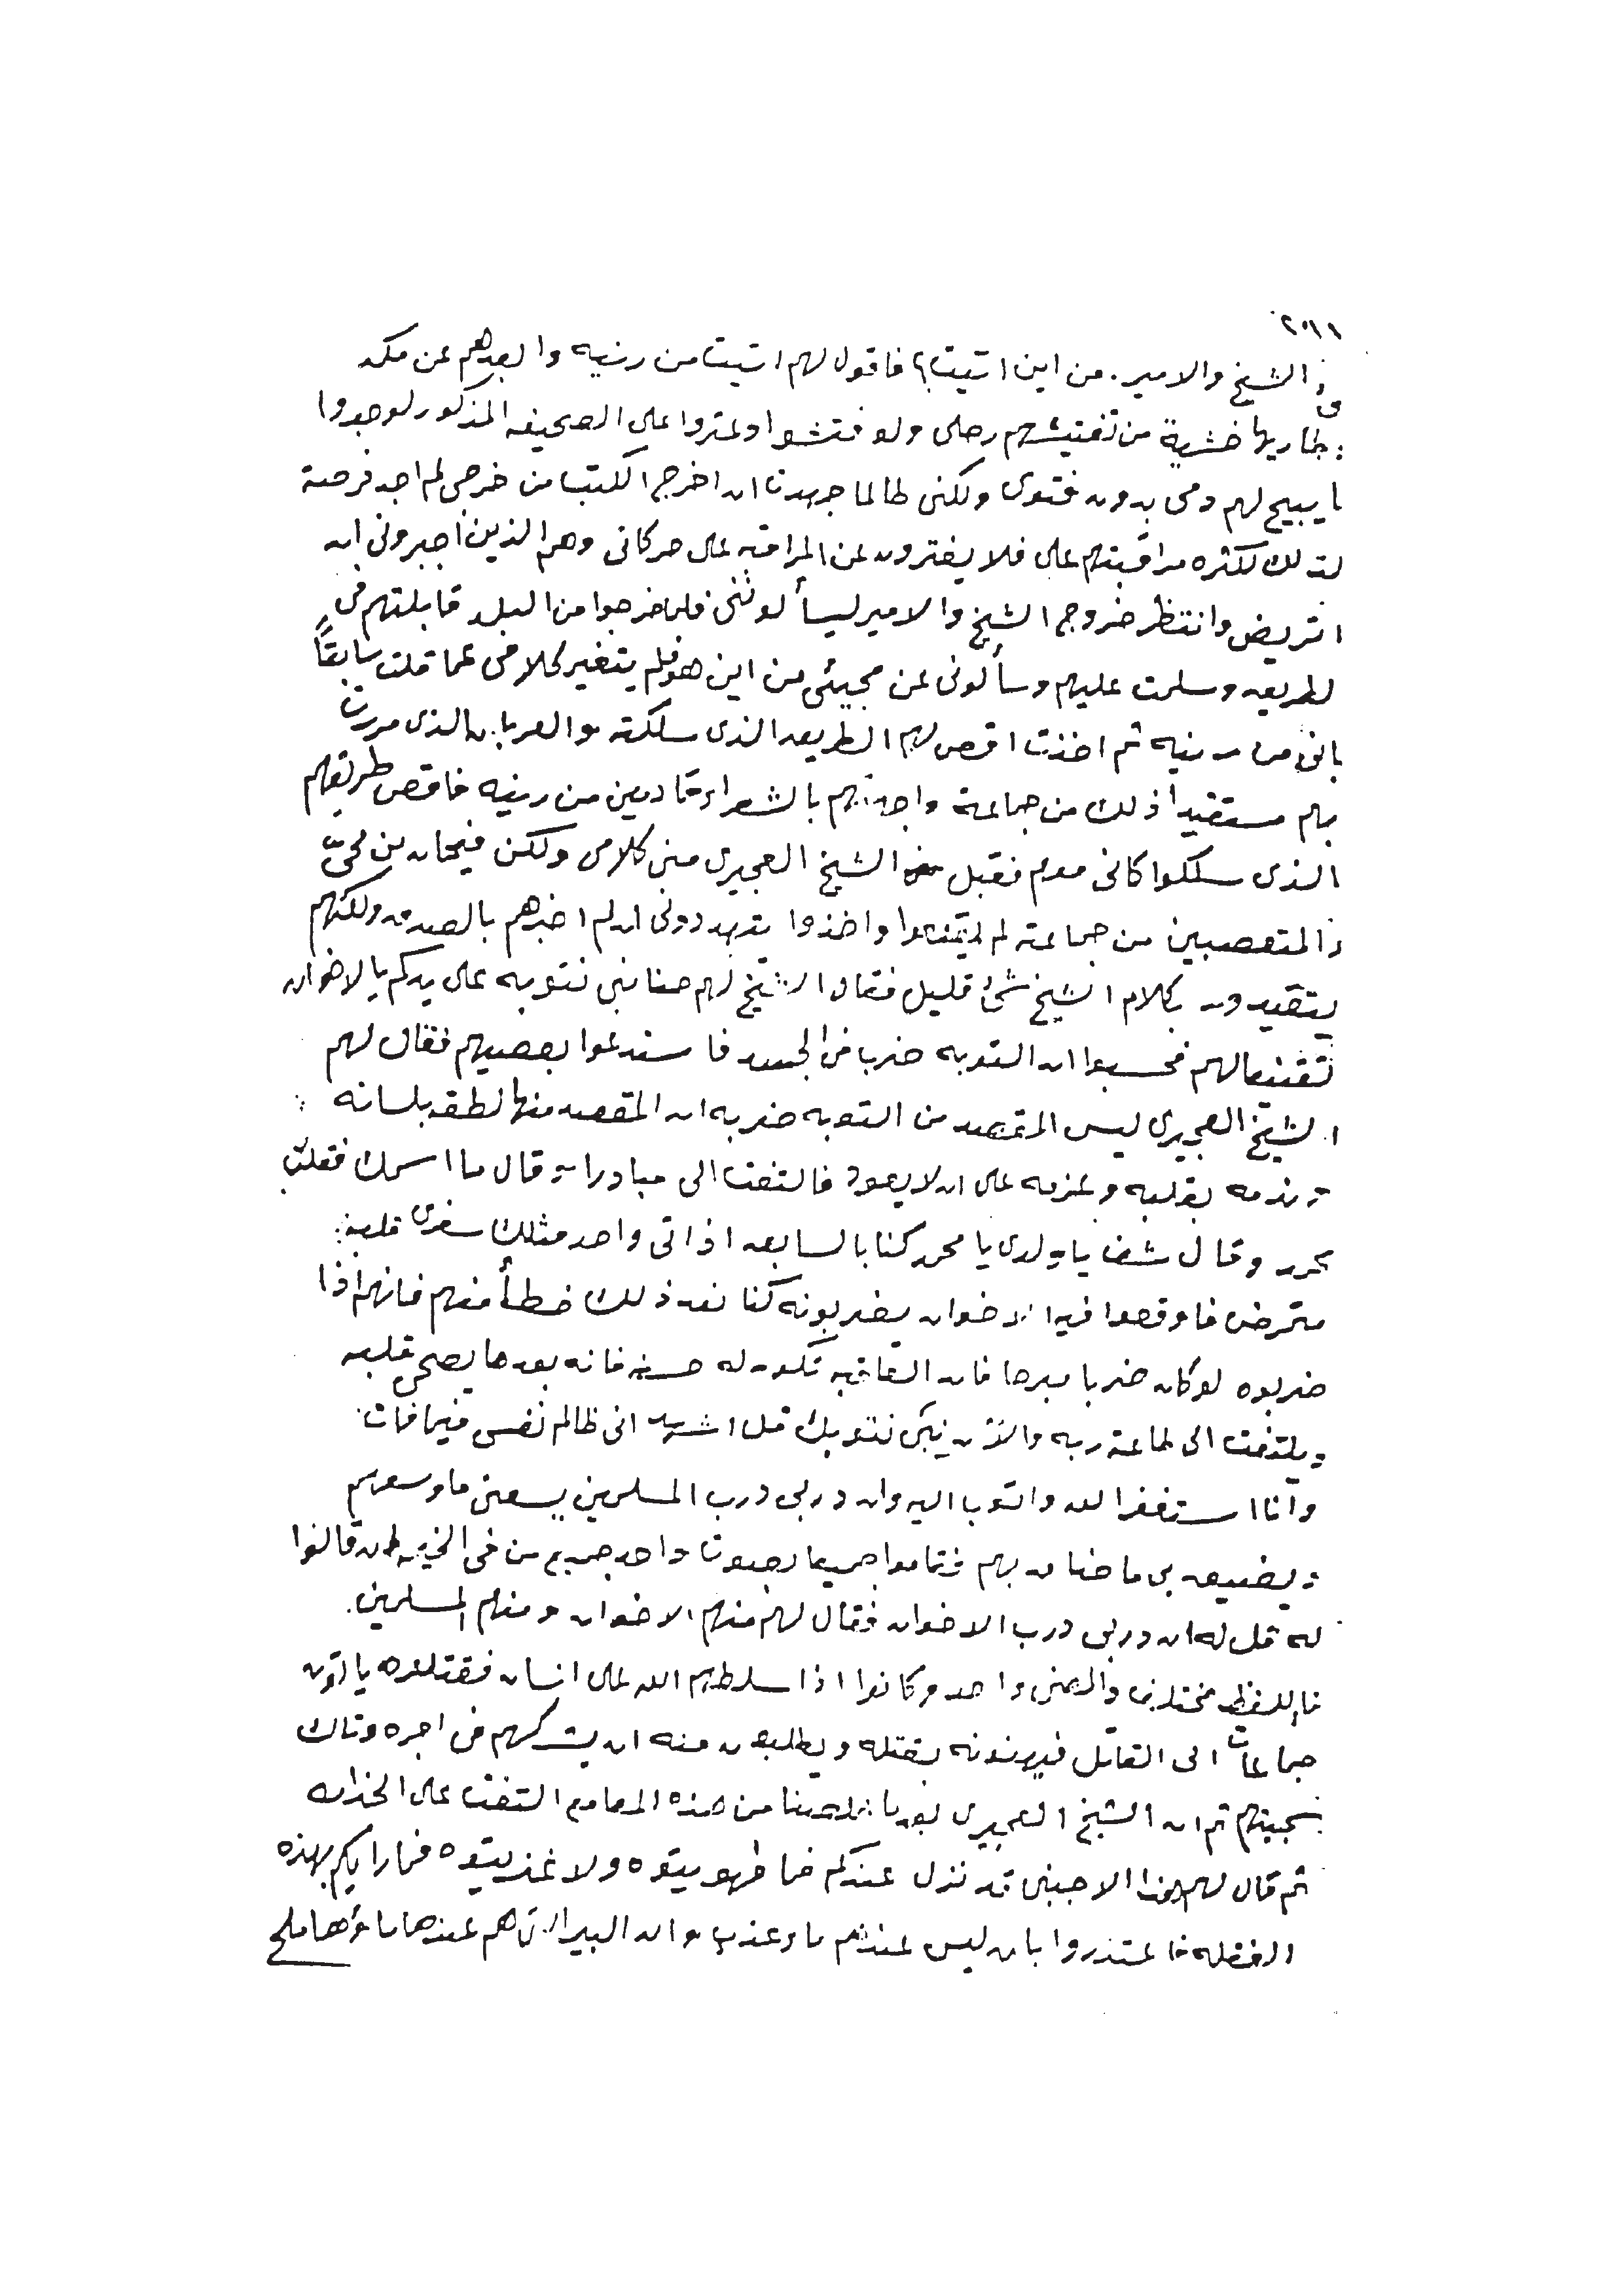 الشيخ والامير. من اين اتيت؟ فاقول لهم اتيت من رنيه وابعدهم عن مكه
خشية من تفتيشهم رحلي ولو فتشوا وعثروا على الصحيفه المذكور لوجدوا
ما يبيح لهم دمي بدون فتوى ولكني طالما جهدت ان اخرج الكتب من خرجي لم اجد فرصة
لذلك لكثره مراقبتهم علي فلا يفترون عن المراقبه على حركاتي وهم الذين اجبروني ان
اتريض وانتظر خروج الشيخ والامير ليسألونني فلما خرجوا من البلد قابلتهم في
لطريق وسلمت عليهم وسألوني عن مجيئي من اين هو فلم يتغير كلامي عما قلت سابقاً
باني من رنيه ثم اخذت اقص لهم الطريق الذي سلكته والعربان الذي مررت
بهم مستفيداً ذلك من جماعة واجهتهم بالشعراء قادمين من رنيه فاقص طريقهم
الذي سلكوا كاني معهم فقبل الشيخ العجيري مني كلامي ولكن فيحان بن محيّ
والمتعصبين من جماعته لم يقتنعوا واخذوا يتهددوني ان لم اخبرهم بالصدق ولكنهم
يتقيدون بكلام الشيخ شئ قليل فقال الشيخ لهم حنا نبي نتوبه على يدكم يالاخوان
تقنيعا لهم فحسبوا ان التوبه ضرب في الجسد فاستدعوا بعصيهم فقال لهم
الشيخ العجيري ليس المقصد من التوبه ضربه ان المقصد منها نطقه بلسانه
وندمه بقلبه وعزمه على ان لا يعود فالتفت الي مبادرا وقال ما اسمك فقلت
محمد وقال شف يا ولدي يا محمد كنا بالسابق اذا اتى واحد مثلك سفري قلبه
متمرض فاوقعوا فيه الاخوان يضربونه كنا نعد ذلك خطأ منهم فانهم اذا
ضربوه لو كان ضربا مبرحا فان العاقبه تكون له حسنه فانه بعدها يصحى قلبه
ويلتفت الى طاعة ربه والآن نبي نتوبك قل اشهد اني ظالم نفسي فيما فات
وانا استغفر الله واتوب اليه وان دربي درب المسلمين يسعني ما وسعهم
ويضيق بي ما ضاق بهم فقاموا جميعا بصوت واحد جميع من في الخيمه قالوا
له قل له ان دربي درب الاخوان فقال لهم منهم الاخوان ومنهم المسلمين
فاللفظ مختلف والمعنى واحد وكانوا اذا سلطهم الله على انسان فقتلوه ياتون
جماعات الى القاتل فيهنونه بقتله ويطلبون منه ان يشركهم في اجره وتلك
سجيتهم ثم ان الشيخ العجيري بعد ما خلصنا من هذه المعامع التفت على
ثم قال لهم هذا الاجنبي قد نزل عندكم فما قهويتوه ولا غذيتوه فما رايكم بهذه
الفعله فاعتذروا بان ليس عندهم ماء عذب وان البير الذي هم عندها ماؤها ملح